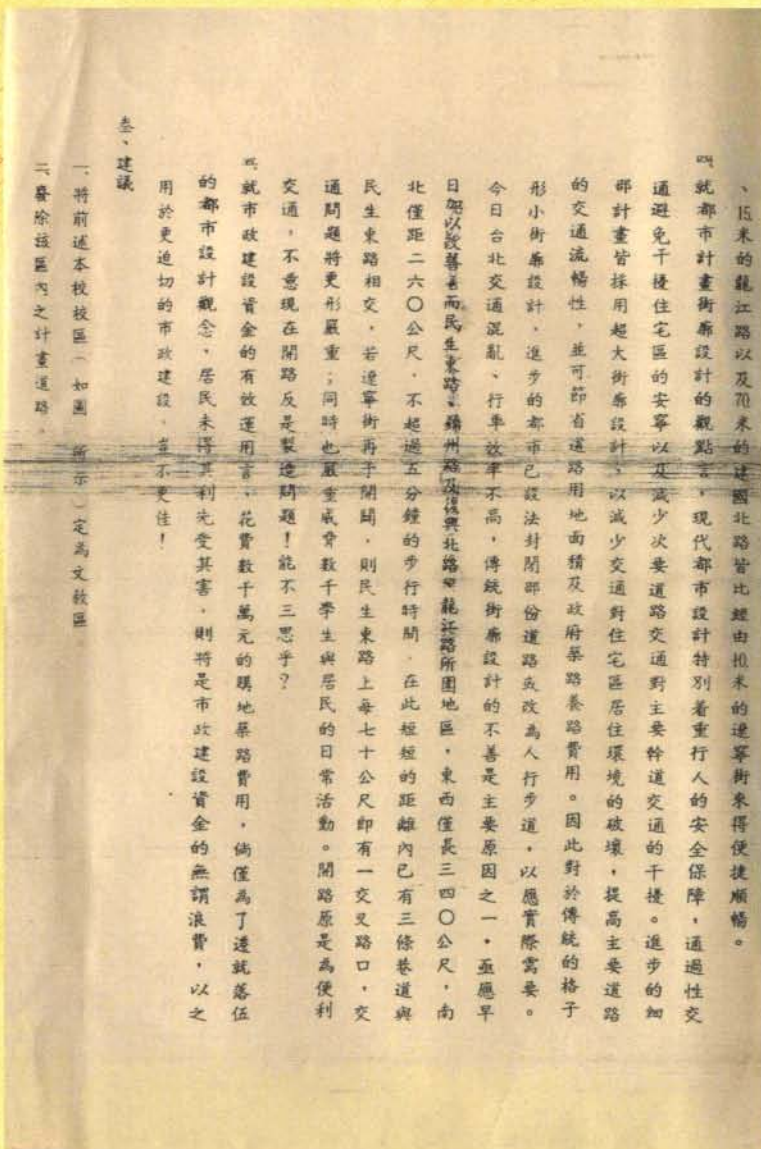 、15米的龍江路以及70米的建國北路皆比經由10米的遼寧街來得便捷順暢。
四、就都市計畫街廓設計的觀點言，現代都市設計特別着重行人的安全保障，通過性交
通避免干擾住宅區的安寧以及減少次要道路交通對主要幹道交通的干擾。進步的細
部計畫皆採用超大街廓設計，以減少交通對住宅區居住環境的破壞，提高主要道路
的交通流暢性，並可節省道路用地面積及政府築路養路費用。因此對於傳統的格子
形小街廓設計，進步的都市已設法封閉部份道路或改為人行步道，以應實際需要。
今日台北交通混亂、行車效率不高，傳統街廓設計的不善是主要原因之一，亟應早
日加以改善。而民生東路、錦州路及復興北路、龍江路所圍地區，東西僅長三四〇公尺，南
北僅距二六〇公尺，不超過五分鐘的步行時間，在此短短的距離內已有三條巷道與
民生東路相交，若遼寧街再予開闢，則民生東路上每七十公尺即有一交叉路口，交
通問題將更形嚴重；同時也嚴重威脅數千學生與居民的日常活動。開路原是為便利
交通，不意現在開路反是製造問題！能不三思乎？
五、就市政建設資金的有效運用言，花費數千萬元的購地築路費用，倘僅為了遷就落伍
的都市設計觀念，居民未得其利先受其害，則將是市政建設資金的無謂浪費，以之
用於更迫切的市政建設，豈不更佳！
叁、建議
一、將前述本校校區（如圖 所示）定為文教區
二、廢除該區內之計畫道路。